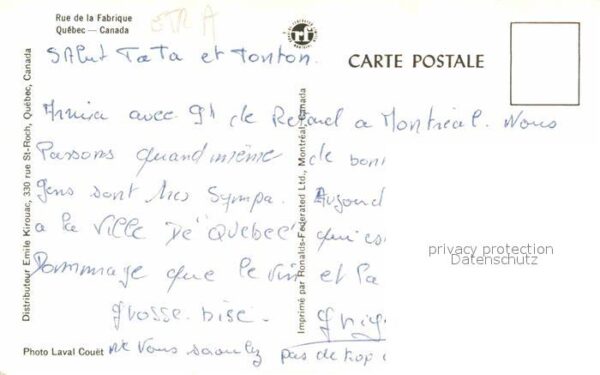 Rue de la Fabrique
Québec — Canada
CARTE POSTALE
Salut Tata et Tonton.
avec 9h de Retard a Montréal. Nous
Passons quand même de bon
gens sont très Sympa. Aujourd
a la Ville De "Québec" qui es
Dommage que le Vin et la
grosse bise.
Ne Vous saoulez pas de trop
Photo Laval Couët
Distributeur Emile Kirouac, 330 rue St-Roch, Québec, Canada
Imprimé par Ronalds-Federated Ltd., Montréal, Canada
privacy protection
Datenschutz